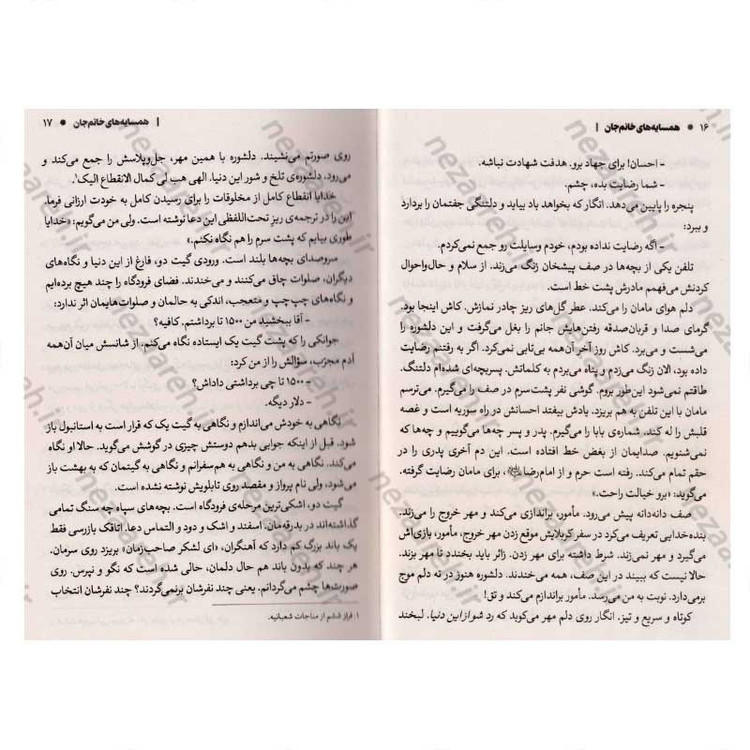 ۱۶ ● همسایه‌های خانم‌جان |
- احسان! برای جهاد برو. هدفت شهادت نباشه.
- شما رضایت بده، چشم.
پنجره را پایین می‌دهد. انگار که بخواهد باد بیاید و دلتنگی جفتمان را بردارد
و ببرد:
- اگه رضایت نداده بودم، خودم وسایلت رو جمع نمی‌کردم.
تلفن یکی از بچه‌ها در صف پیشخان زنگ می‌زند. از سلام و حال‌واحوال
کردنش می‌فهمم مادرش پشت خط است.
دلم هوای مامان را می‌کند. عطر گل‌های ریز چادر نمازش. کاش اینجا بود.
گرمای صدا و قربان‌صدقه رفتن‌هایش جانم را بغل می‌گرفت و این دلشوره را
می‌شست و می‌برد. کاش روز آخر آن‌همه بی‌تابی نمی‌کرد. اگر به رفتنم رضایت
داده بود، الان زنگ می‌زدم و پناه می‌بردم به کلماتش. پسربچه‌ای شده‌ام دلتنگ.
طاقتم نمی‌شود این‌طور بروم. گوشی نفر پشت‌سرم در صف را می‌گیرم. می‌ترسم
مامان با این تلفن به هم بریزد. یادش بیفتد احسانش در راه سوریه است و غصه
قلبش را له کند. شماره‌ی بابا را می‌گیرم. پدر و پسر چه‌ها می‌گوییم و چه‌ها که
نمی‌شنویم. صدایمان از بغض خط افتاده است. این دم آخری پدری را در
حقم تمام می‌کند. رفته است حرم و از امام‌رضا برای مامان رضایت گرفته.
می‌گوید: «برو خیالت راحت.»
صف دانه‌دانه پیش می‌رود. مأمور، براندازی می‌کند و مهر خروج را می‌زند.
بنده‌خدایی تعریف می‌کرد در سفر کربلایش موقع زدن مهر خروج، مأمور، بازی‌اش
می‌گیرد و مهر نمی‌زند. شرط داشته برای مهر زدن. زائر باید بخندد تا مهر بزند.
حالا نیست که ببیند در این صف، همه می‌خندند. دلشوره هنوز در ته دلم موج
برمی‌دارد. نوبت به من می‌رسد. مأمور براندازم می‌کند و تق!
کوتاه و سریع و تیز. انگار روی دلم مهر می‌کوبد که رد شو از این دنیا. لبخند
| همسایه‌های خانم‌جان ● ۱۷
روی صورتم می‌نشیند. دلشوره با همین مهر، جل‌وپلاسش را جمع می‌کند و
می‌رود. دلشوره‌ی تلخ و شور این دنیا. الهی هب لی کمال الانقطاع الیک۱.
خدایا انقطاع کامل از مخلوقات را برای رسیدن کامل به خودت ارزانی فرما.
این را در ترجمه‌ی ریز تحت‌اللفظی این دعا نوشته است. ولی من می‌گویم: «خدایا
طوری بیایم که پشت سرم را هم نگاه نکنم.»
سروصدای بچه‌ها بلند است. ورودی گیت دو، فارغ از این دنیا و نگاه‌های
دیگران، صلوات چاق می‌کنند و می‌خندند. فضای فرودگاه را چند هیچ برده‌ایم
و نگاه‌های چپ‌چپ و متعجب، اندکی به حالمان و صلوات‌هایمان اثر ندارد:
- آقا ببخشید من ۱۵۰۰ تا برداشتم. کافیه؟
جوانکی را که پشت گیت یک ایستاده نگاه می‌کنم. از شانسش میان آن‌همه
آدم مجرب، سؤالش را از من کرد:
- ۱۵۰۰ تا چی برداشتی داداش؟
- دلار دیگه.
نگاهی به خودش می‌اندازم و نگاهی به گیت یک که قرار است به استانبول باز
شود. قبل از اینکه جوابی بدهم دوستش چیزی در گوشش می‌گوید. حالا او نگاه
می‌کند. نگاهی به من و نگاهی به هم‌سفرانم و نگاهی به گیتمان که به بهشت باز
می‌شود، ولی نام پرواز و مقصد روی تابلویش نوشته نشده است.
گیت دو، اشکی‌ترین مرحله‌ی فرودگاه است. بچه‌های سپاه چه سنگ تمامی
گذاشته‌اند در بدرقه‌مان. اسفند و اشک و دود و التماس دعا. اتاقک بازرسی فقط
یک باند بزرگ کم دارد که آهنگران، «ای لشکر صاحب‌زمان» بریزد روی سرمان.
هر چند که بدون باند هم حال دلمان، حالی شده است که نگو و نپرس. روی
صورت‌ها چشم می‌گردانم. یعنی چند نفرشان برنمی‌گردند؟ چند نفرشان انتخاب
۱. فراز ششم از مناجات شعبانیه.
nezzareh.ir